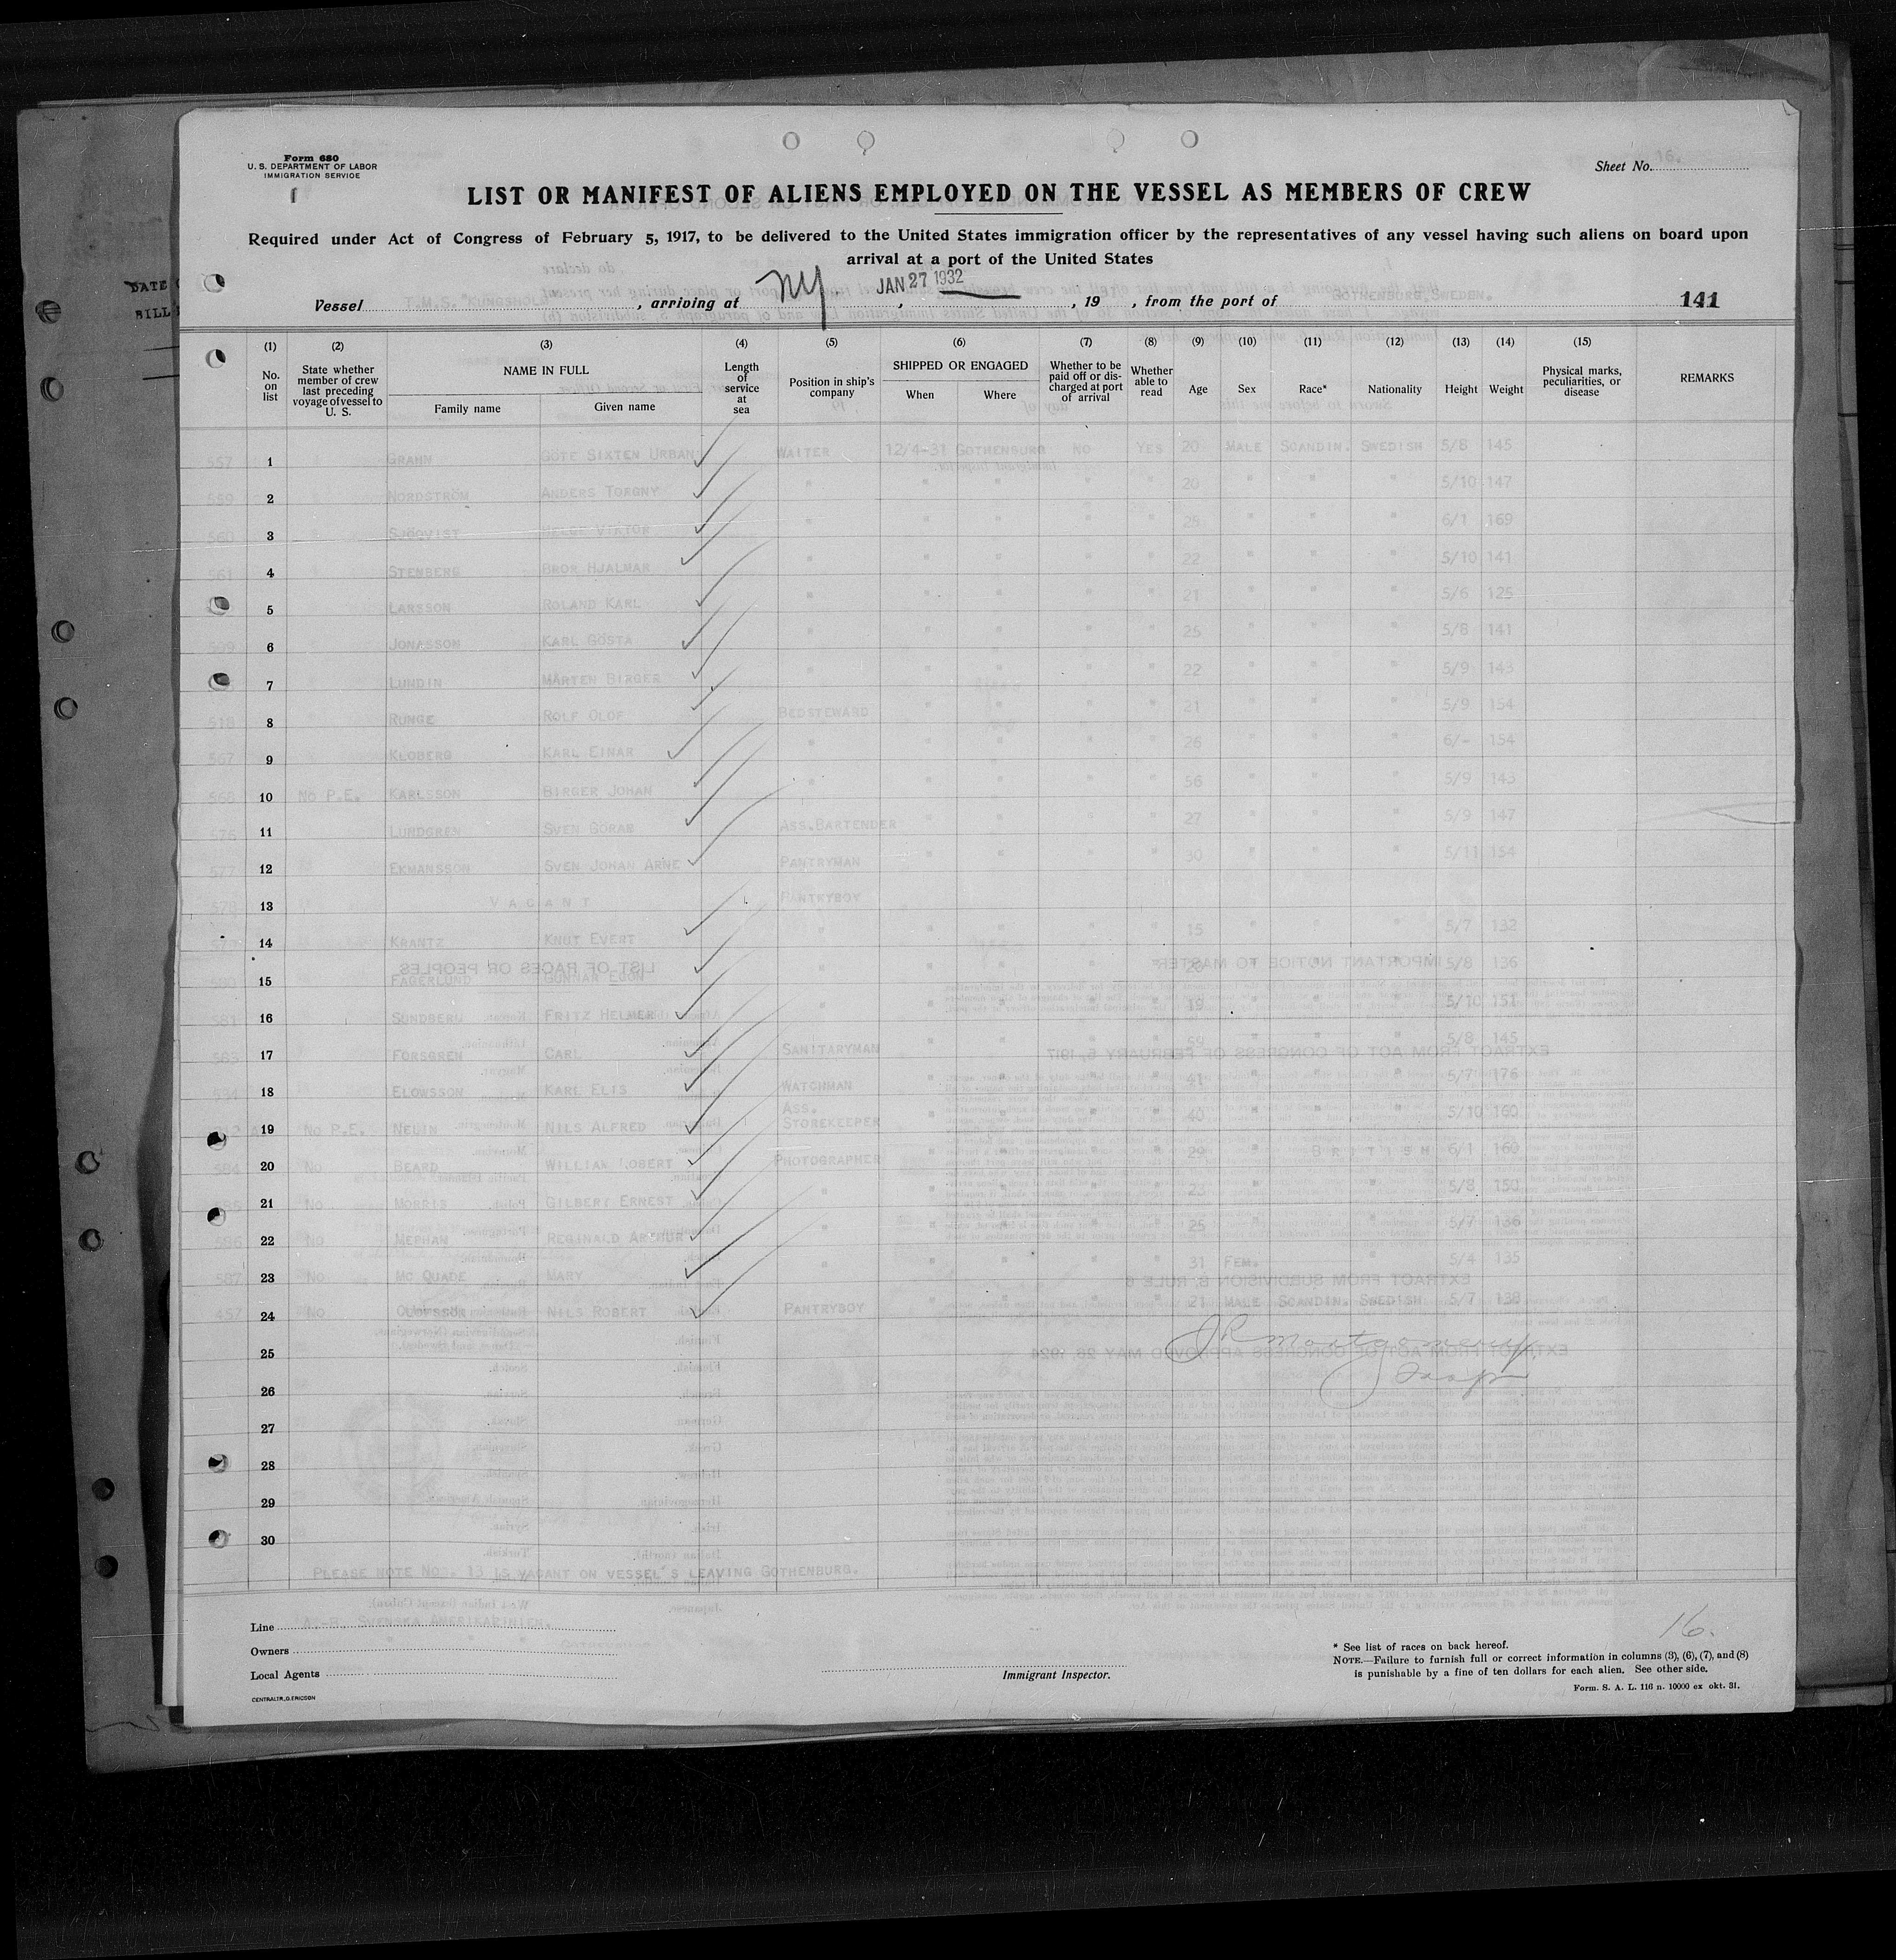 Form 680
U. S. DEPARTMENT OF LABOR
IMMIGRATION SERVICE
Sheet No. 16.
LIST OR MANIFEST OF ALIENS EMPLOYED ON THE VESSEL AS MEMBERS OF CREW
Required under Act of Congress of February 5, 1917, to be delivered to the United States immigration officer by the representatives of any vessel having such aliens on board upon
arrival at a port of the United States
DATE
BILL
Vessel T.M.S. "KUNGSHOLM", arriving at NY, JAN 27 1932, 19 , from the port of GOTHENBURG, SWEDEN. 141
(1) No. on list (2) State whether member of crew last preceding voyage of vessel to U. S. (3) NAME IN FULL Family name Given name (4) Length of service at sea (5) Position in ship's company (6) SHIPPED OR ENGAGED When Where (7) Whether to be paid off or discharged at port of arrival (8) Whether able to read (9) Age (10) Sex (11) Race* (12) Nationality (13) Height (14) Weight (15) Physical marks, peculiarities, or disease REMARKS
557 1 GRAHN GÖTE SIXTEN URBAN WAITER 12/4-31 GOTHENBURG NO YES 20 MALE SCANDIN. SWEDISH 5/8 145
559 2 NORDSTRÖM ANDERS TORGNY " " " " " 20 " " " 5/10 147
560 3 SJÖQVIST HELGE VIKTOR " " " " " 25 " " " 6/1 169
561 4 STENBERG BROR HJALMAR " " " " " 22 " " " 5/10 141
5 LARSSON ROLAND KARL " " " " " 21 " " " 5/6 125
6 JONASSON KARL GÖSTA " " " " " 25 " " " 5/8 141
7 LUNDIN MÅRTEN BIRGER " " " " " 22 " " " 5/9 143
518 8 RUNGE ROLF OLOF BEDSTEWARD " " " " 21 " " " 5/9 154
567 9 KLOBERG KARL EINAR " " " " " 26 " " " 6/- 154
568 10 NO P.E. KARLSSON BIRGER JOHAN " " " " " 56 " " " 5/9 143
576 11 LUNDGREN SVEN GÖRAN ASS.BARTENDER " " " " 27 " " " 5/9 147
577 12 EKMANSSON SVEN JOHAN ARNE PANTRYMAN " " " " 30 " " " 5/11 154
578 13 VACANT PANTRYBOY
14 KRANTZ KNUT EVERT " " " " " 15 " " " 5/7 132
580 15 FAGERLUND GUNNAR EGON " " " " " 20 " " " 5/8 136
581 16 SUNDBERG FRITZ HELMER " " " " " 19 " " " 5/10 151
583 17 FORSGREN CARL SANITARYMAN " " " " 54 " " " 5/8 145
534 18 ELOWSSON KARL ELIS WATCHMAN " " " " 41 " " " 5/7 176
19 NO P.E. NELIN NILS ALFRED ASS. STOREKEEPER " " " " 40 " " " 5/10 160
584 20 NO BEARD WILLIAM ROBERT PHOTOGRAPHER " " " " 29 " BRITISH 6/1 160
585 21 NO MORRIS GILBERT ERNEST " " " " " 23 " " 5/8 150
586 22 NO MEPHAM REGINALD ARTHUR " " " " " 25 " " 5/7 136
587 23 NO MC QUADE MARY " " " " " 31 FEM. " 5/4 135
457 24 NO OLOFSSON NILS ROBERT PANTRYBOY " " " " 21 MALE SCANDIN. SWEDISH 5/7 138
25
J R Montgomery
Insp
26
27
28
29
30
PLEASE NOTE NO. 13 IS VACANT ON VESSEL'S LEAVING GOTHENBURG.
Line A.-B. SVENSKA AMERIKALINIEN.
Owners " " "
Local Agents
CENTRALTR., G. ERICSON
Immigrant Inspector.
16.
* See list of races on back hereof.
NOTE.—Failure to furnish full or correct information in columns (3), (6), (7), and (8)
is punishable by a fine of ten dollars for each alien. See other side.
Form. S. A. L. 116 n. 10000 ex okt. 31.